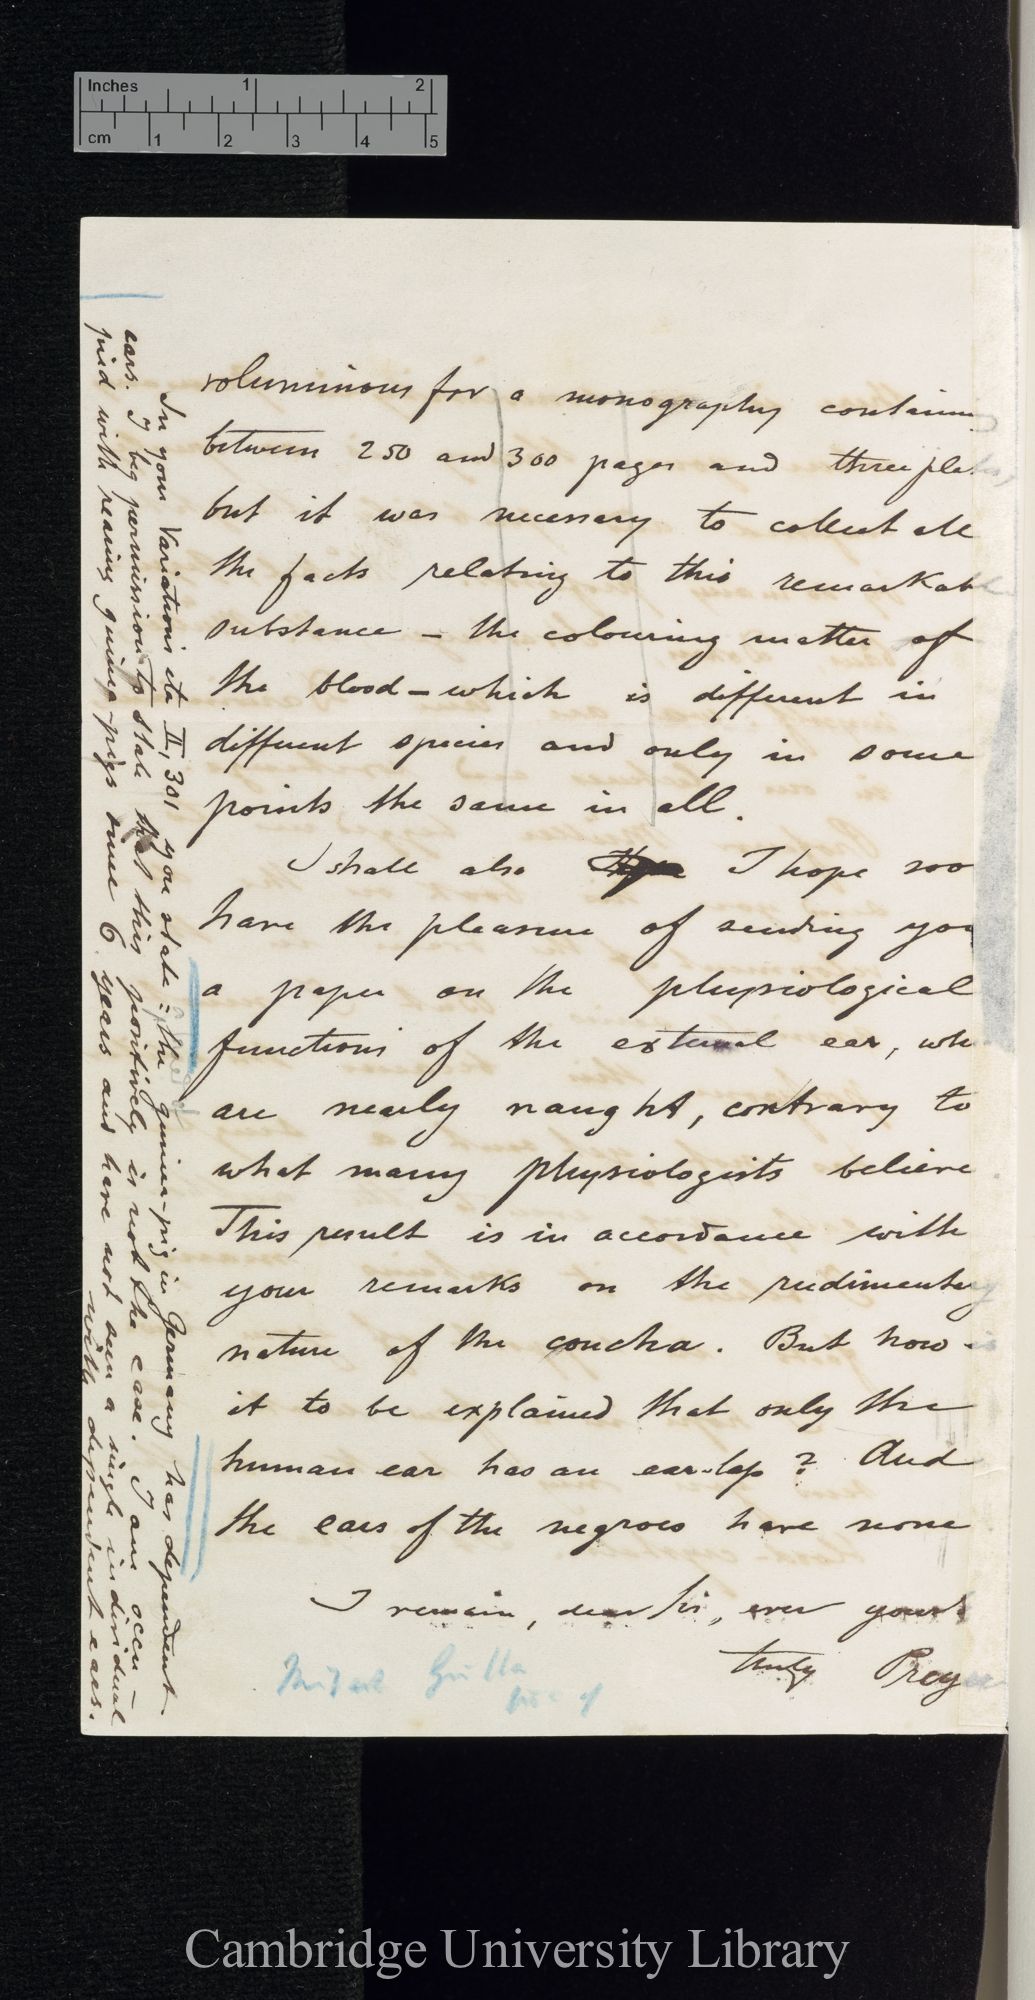 Inches 1 2
cm 1 2 3 4 5
voluminous for a monography containing
between 250 and 300 pages and three plates,
but it was necessary to collect all
the facts relating to this remarkable
substance – the colouring matter of
the blood – which is different in
different species and only in some
points the same in all.
I shall also I hope soo
have the pleasure of sending you
a paper on the physiological
functions of the external ear, whi
are nearly naught, contrary to
what many physiologists believe
This result is in accordance with
your remarks on the rudimentary
nature of the concha. But how is
it to be explained that only the
human ear has an ear-lap? And
the ears of the negroes have none
I remain, dear Sir, ever yours
truly Preyer
In your Variations etc II, 301 you state: the guinea-pig in Germany has dependent
ears. I beg permission to state that this positively is not the case. I am occu-
pied with rearing guinea-pigs since 6 years and have not seen a single individual
with dependent ears.
Cambridge University Library